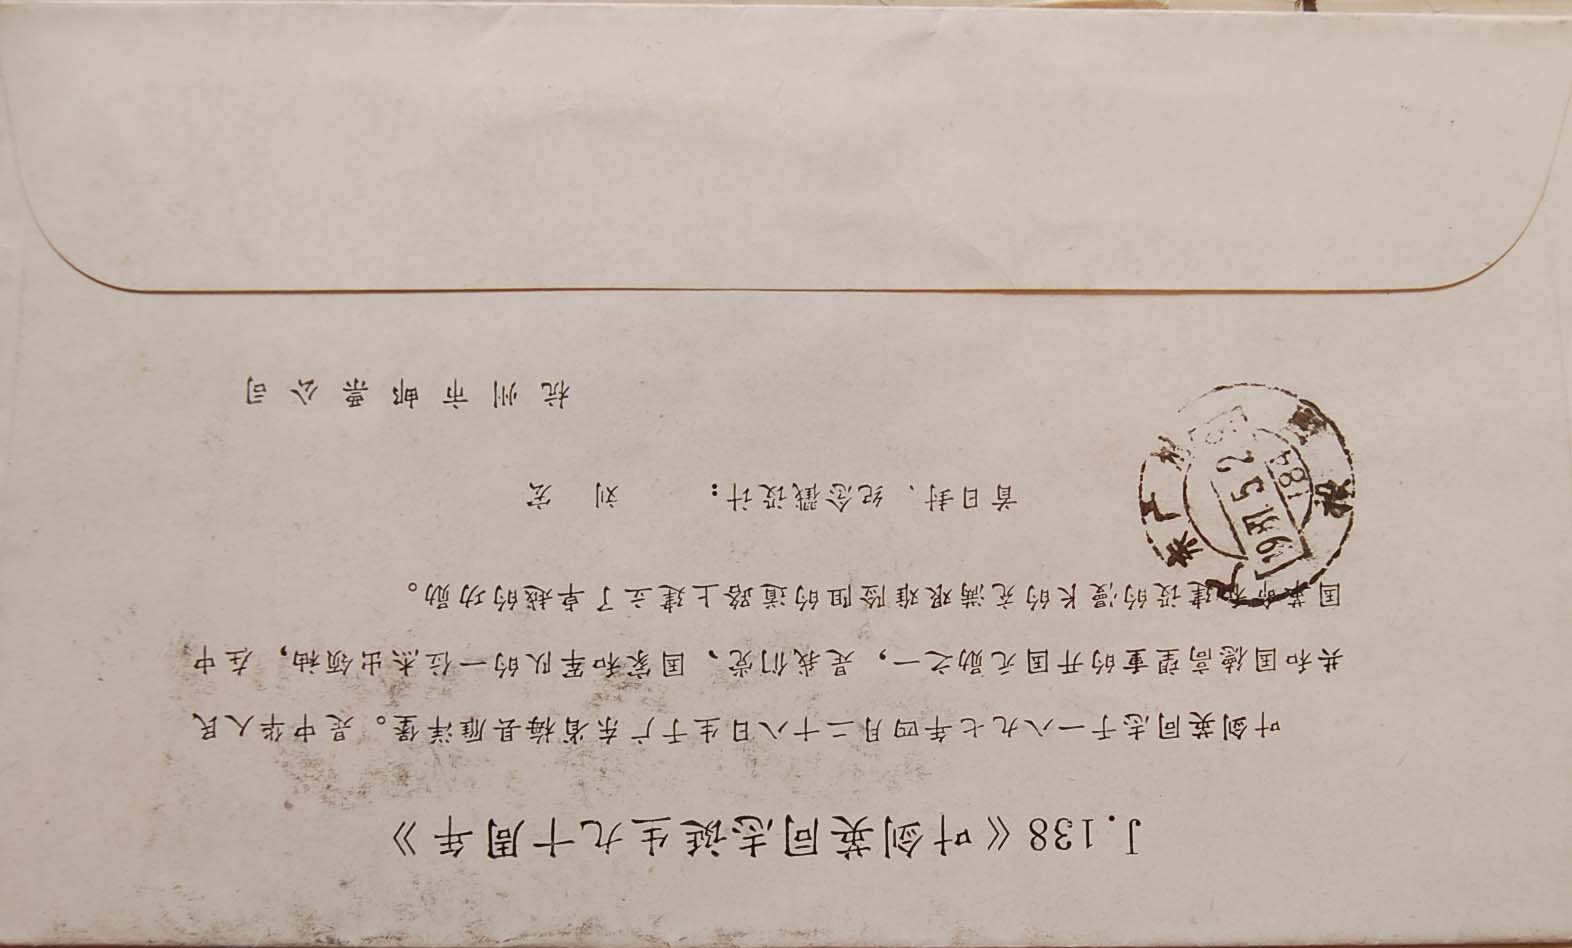 J.138《叶剑英同志诞生九十周年》
叶剑英同志于一八九七年四月二十八日生于广东省梅县雁洋堡。是中华人民
共和国德高望重的开国元勋之一,是我们党、国家和军队的一位杰出领袖,在中
国革命和建设的漫长的充满艰难险阻的道路上建立了卓越的功勋。
首日封、纪念戳设计: 刘 宏
杭州市邮票公司
广